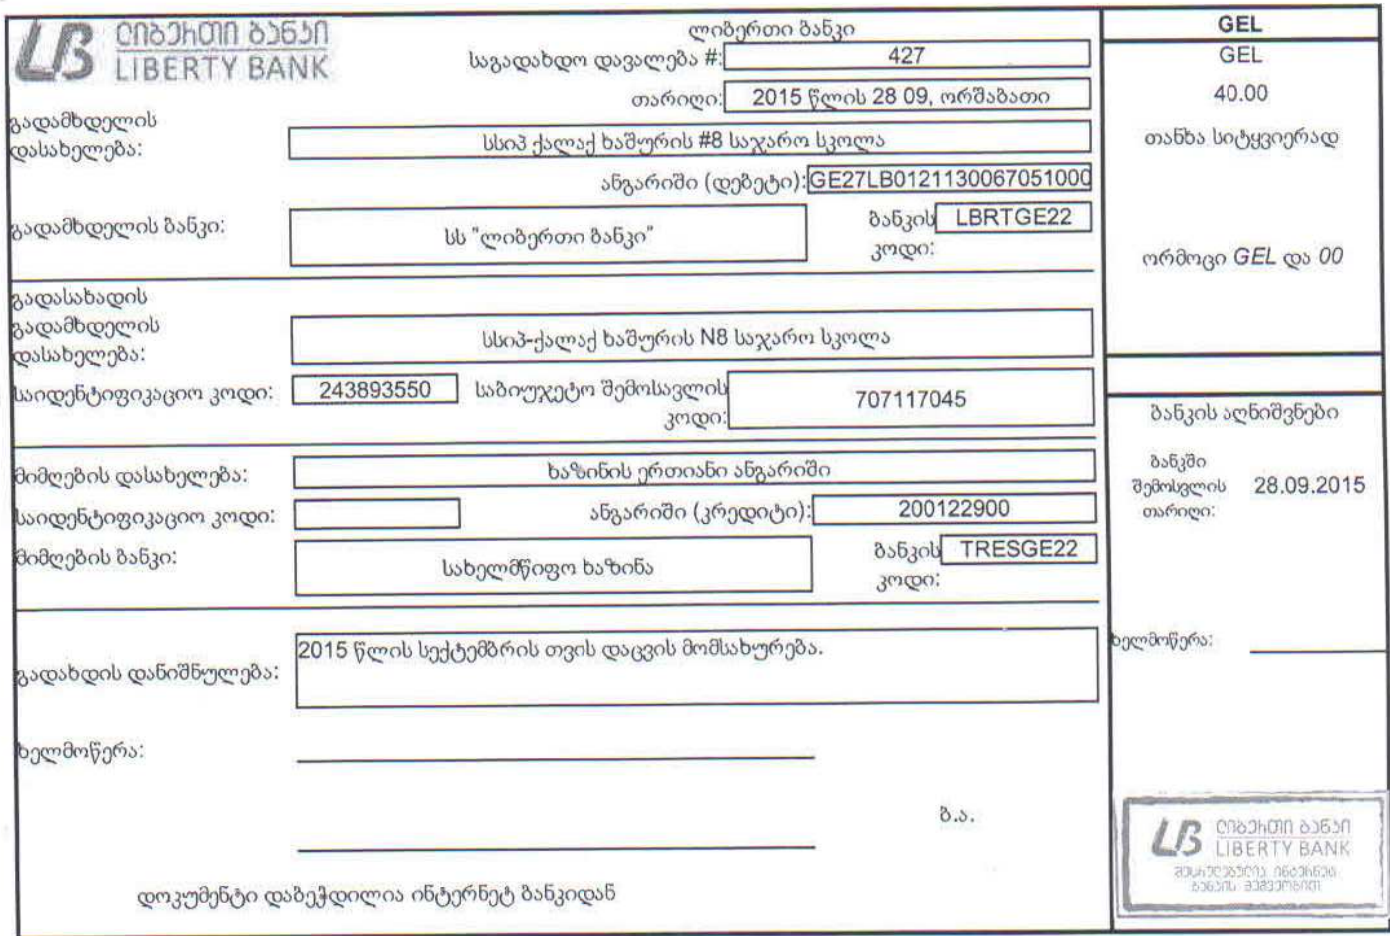 ლიბერთი ბანკი
LIBERTY BANK
ლიბერთი ბანკი
საგადახდო დავალება #: 427
თარიღი: 2015 წლის 28 09, ორშაბათი
გადამხდელის
დასახელება:
სსიპ ქალაქ ხაშურის #8 საჯარო სკოლა
ანგარიში (დებეტი): GE27LB0121130067051000
გადამხდელის ბანკი:
სს "ლიბერთი ბანკი"
ბანკის
კოდი:
LBRTGE22
გადასახადის
გადამხდელის
დასახელება:
სსიპ-ქალაქ ხაშურის N8 საჯარო სკოლა
საიდენტიფიკაციო კოდი: 243893550
საბიუჯეტო შემოსავლის
კოდი:
707117045
მიმღების დასახელება: ხაზინის ერთიანი ანგარიში
საიდენტიფიკაციო კოდი:
ანგარიში (კრედიტი): 200122900
მიმღების ბანკი:
სახელმწიფო ხაზინა
ბანკის
კოდი:
TRESGE22
გადახდის დანიშნულება:
2015 წლის სექტემბრის თვის დაცვის მომსახურება.
ხელმოწერა:
ბ.ა.
დოკუმენტი დაბეჭდილია ინტერნეტ ბანკიდან
GEL
GEL
40.00
თანხა სიტყვიერად
ორმოცი GEL და 00
ბანკის აღნიშვნები
ბანკში
შემოსვლის
თარიღი:
28.09.2015
ხელმოწერა:
ლიბერთი ბანკი
LIBERTY BANK
შესრულებულია ინტერნეტ
ბანკის მეშვეობით